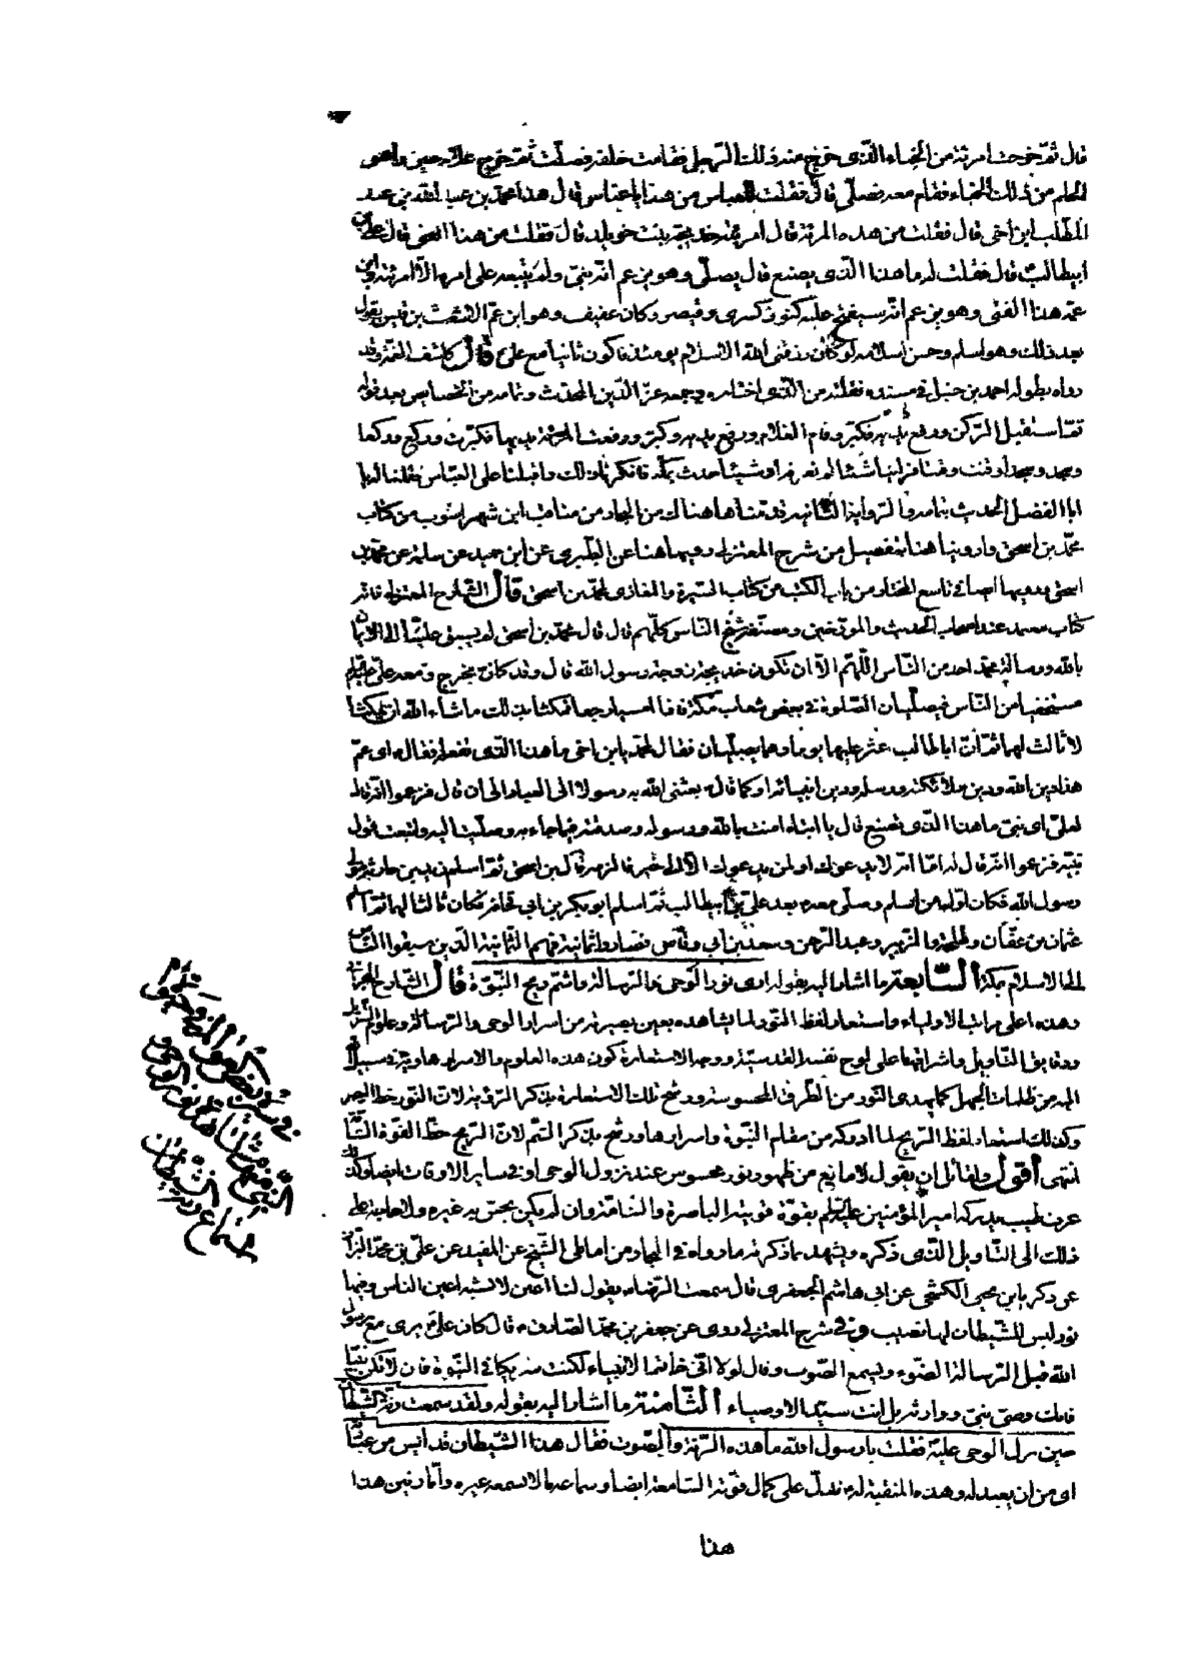 قال ثمّ خرجت امرئة من الخباء الّذى خرج منه ذلك الرّجل فقامت خلفه فصلّت ثمّ خرج غلام حين راهق
الحلم من ذلك الخباء فقام معه فصلّى قال فقلت للعباس من هذا يا عباس قال هذا محمد بن عبد الله بن عبد
المطّلب ابن أخى قال فقلت من هذه المرئة قال امرئته خديجة بنت خويلد قال فقلت من هذا الفتى قال علىّ بن
أبيطالب قال فقلت له ما هذا الّذى يصنع قال يصلّى وهو يزعم انّه نبىّ ولم يتبعه على امره الّا امرئته وابن
عمّه هذا الفتى وهو يزعم انّه سيفتح عليه كنوز كسرى وقيصر وكان عفيف وهو ابن عمّ الاشعث بن قيس يقول
بعد ذلك وهو اسلم وحسن اسلامه لو كان رزقنى الله الاسلام يومئذ فاكون ثانيا مع علىّ قال كاشف الغمّة وقد
رواه بطوله احمد بن حنبل فى مسنده نقلته من الّذى اختاره وجمعه عزّ الدّين المحدّث وتمامه من الخصايص بعد قوله
ثمّ استقبل الرّكن ورفع يديه فكبّر وقام الغلام ورفع يديه وكبّر ورفعت المرئة يديها فكبّرت وركع وركعا
وسجد وسجدا وقنت وقنتا فراينا شيئا لم نعرفه او شيئا حدث بمكّة فانكرنا ذلك واقبلنا على العبّاس فقلنا له يا
ابا الفضل الحديث بتمامه والرّواية الثّانية قد تمناها هناك من البحار من مناقب ابن شهرآشوب من كتاب
محمّد بن اسحق وروينا هنا بتفصيل من شرح المعتزلى رويها هنا عن الطّبرى عن ابن حميد عن سلمة عن محمّد بن
اسحق ورويها ايضا فى تاسع المختار من باب الكتب من كتاب السّيرة والمغازى لمحمّد بن اسحق قال الشّارح المعتزلى فانّه
كتاب معتمد عند اصحاب الحديث والمورّخين ومصنّفه شيخ النّاس كلّهم قال قال محمّد بن اسحق لم يسبق عليّا الى الايمان
بالله ورسالة محمّد احد من النّاس اللّهم الّا ان تكون خديجة زوجة رسول الله قال وقد كان يخرج ومعه علىّ
مستخفيا من النّاس فيصلّيان الصّلوة فى بعض شعاب مكّة فاذا امسيا رجعا فمكثا بذلك ما شاء الله ان يمكثا
لا ثالث لهما ثمّ انّ ابا طالب عثر عليهما يوما وهما يصلّيان فقال لمحمّد يا ابن اخى ما هذا الّذى تفعله فقال اى عمّ
هذا دين الله ودين ملائكته ورسله ودين ابينا ابراهيم او كما قال بعثنى الله به رسولا الى العباد الى ان قال فزعموا انّه قال
لعلىّ اى بنىّ ما هذا الّذى تصنع قال يا ابتاه امنت بالله ورسوله وصدّقته فيما جاء به وصلّيت اليه واتّبعت قول
نبيّه فزعموا انّه قال له اما انّه لا يدعوك او لن يدعوك الّا الى خير فالزمه قال ابن اسحق ثمّ اسلم زيد بن حارثة مولى
رسول الله فكان اوّل من اسلم وصلّى معه بعد علىّ بن أبيطالب ثمّ اسلم ابو بكر بن ابى قحافة فكان ثالثا لهما ثمّ اسلم
عثمان بن عفّان وطلحة والزّبير وعبد الرّحمن وسعد بن أبى وقّاص فصاروا ثمانية فهم الثّمانية الّذين سبقوا النّاس
الى الاسلام بمكّة السّابعة ما اشار اليه بقوله ارى نور الوحى والرّسالة واشمّ ريح النّبوّة قال الشّارح البحرانى
وهذه اعلى مراتب الاولياء واستعار لفظ النّور لما يشاهده بعين بصيرته من اسرار الوحى والرّسالة وعلوم التّنزيل
ودقايق التّاويل واشراقها على لوح نفسه القدسيّة ووجه الاستعارة كون هذه العلوم والاسرار هادية فى سبيل الله
اليه من ظلمات الجهل كما يهدى النّور من الطّرق المحسوسة ورشّح تلك الاستعارة بذكر الرّؤية لانّ النّور حظّ البصر
وكذلك استعار لفظ الرّيح لما ادركه من مقام النّبوّة واسرارها ورشّح بذكر الشّم لانّ الرّيح حظّ القوّة الشّامّة
انتهى أقول ولقائل ان يقول لا مانع من ظهور نور محسوس عند نزول الوحى او فى ساير الاوقات ايضا وكذلك
عرف طيب يدركه امير المؤمنين عليه السّلم بقوّة قوّتيه الباصرة والشّامّة وان لم يكن يحسّ به غيره ولا حاجة على
ذلك الى التّاويل الّذى ذكره ويشهد بما ذكرته ما رواه فى البحار من امالى الشّيخ عن المفيد عن علىّ بن محمّد البزّاز
عن زكريا بن يحيى الكشحى عن ابى هاشم الجعفرى قال سمعت الرّضا يقول لنا اعين لا تشبه اعين النّاس وفيها
نور ليس للشّيطان لها نصيب وفى شرح المعتزلى روى عن جعفر بن محمّد الصّادق قال كان علىّ يرى مع رسول
الله قبل الرّسالة الضّوء ويسمع الصّوت وقال لولا انّى خاتم الانبياء لكنت شريكا فى النّبوّة فان لا تكن نبيّا
فانّك وصىّ نبىّ ووارثه بل انت سيّد الاوصياء الثّامنة ما اشار اليه بقوله ولقد سمعت رنّة الشّيطان
حين نزل الوحى عليه فقلت يا رسول الله ما هذه الرّنّة والصّوت فقال هذا الشّيطان قد ايس من عبادته
اى من ان يعبد له وهذه المنقبة له تدلّ على كمال قوّته السّامعة ايضا وسماعه ما لا يسمعه غيره وأمّا رنين هذا
هذا